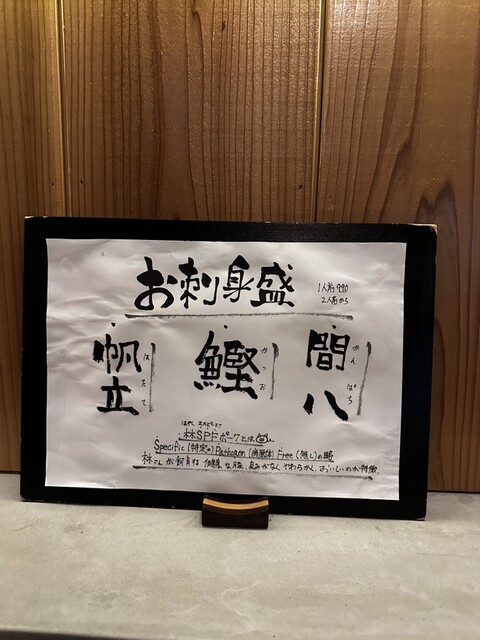 お刺身盛
1人前990
2人前から
間八
かんぱち
鰹
かつお
帆立
ほたて
林SPFポークとは
Specific (特定の) Pathogen (病原体) Free (無し)の豚
林さんが飼育する健康な豚、臭みがなく、やわらかく、おいしいのが特徴